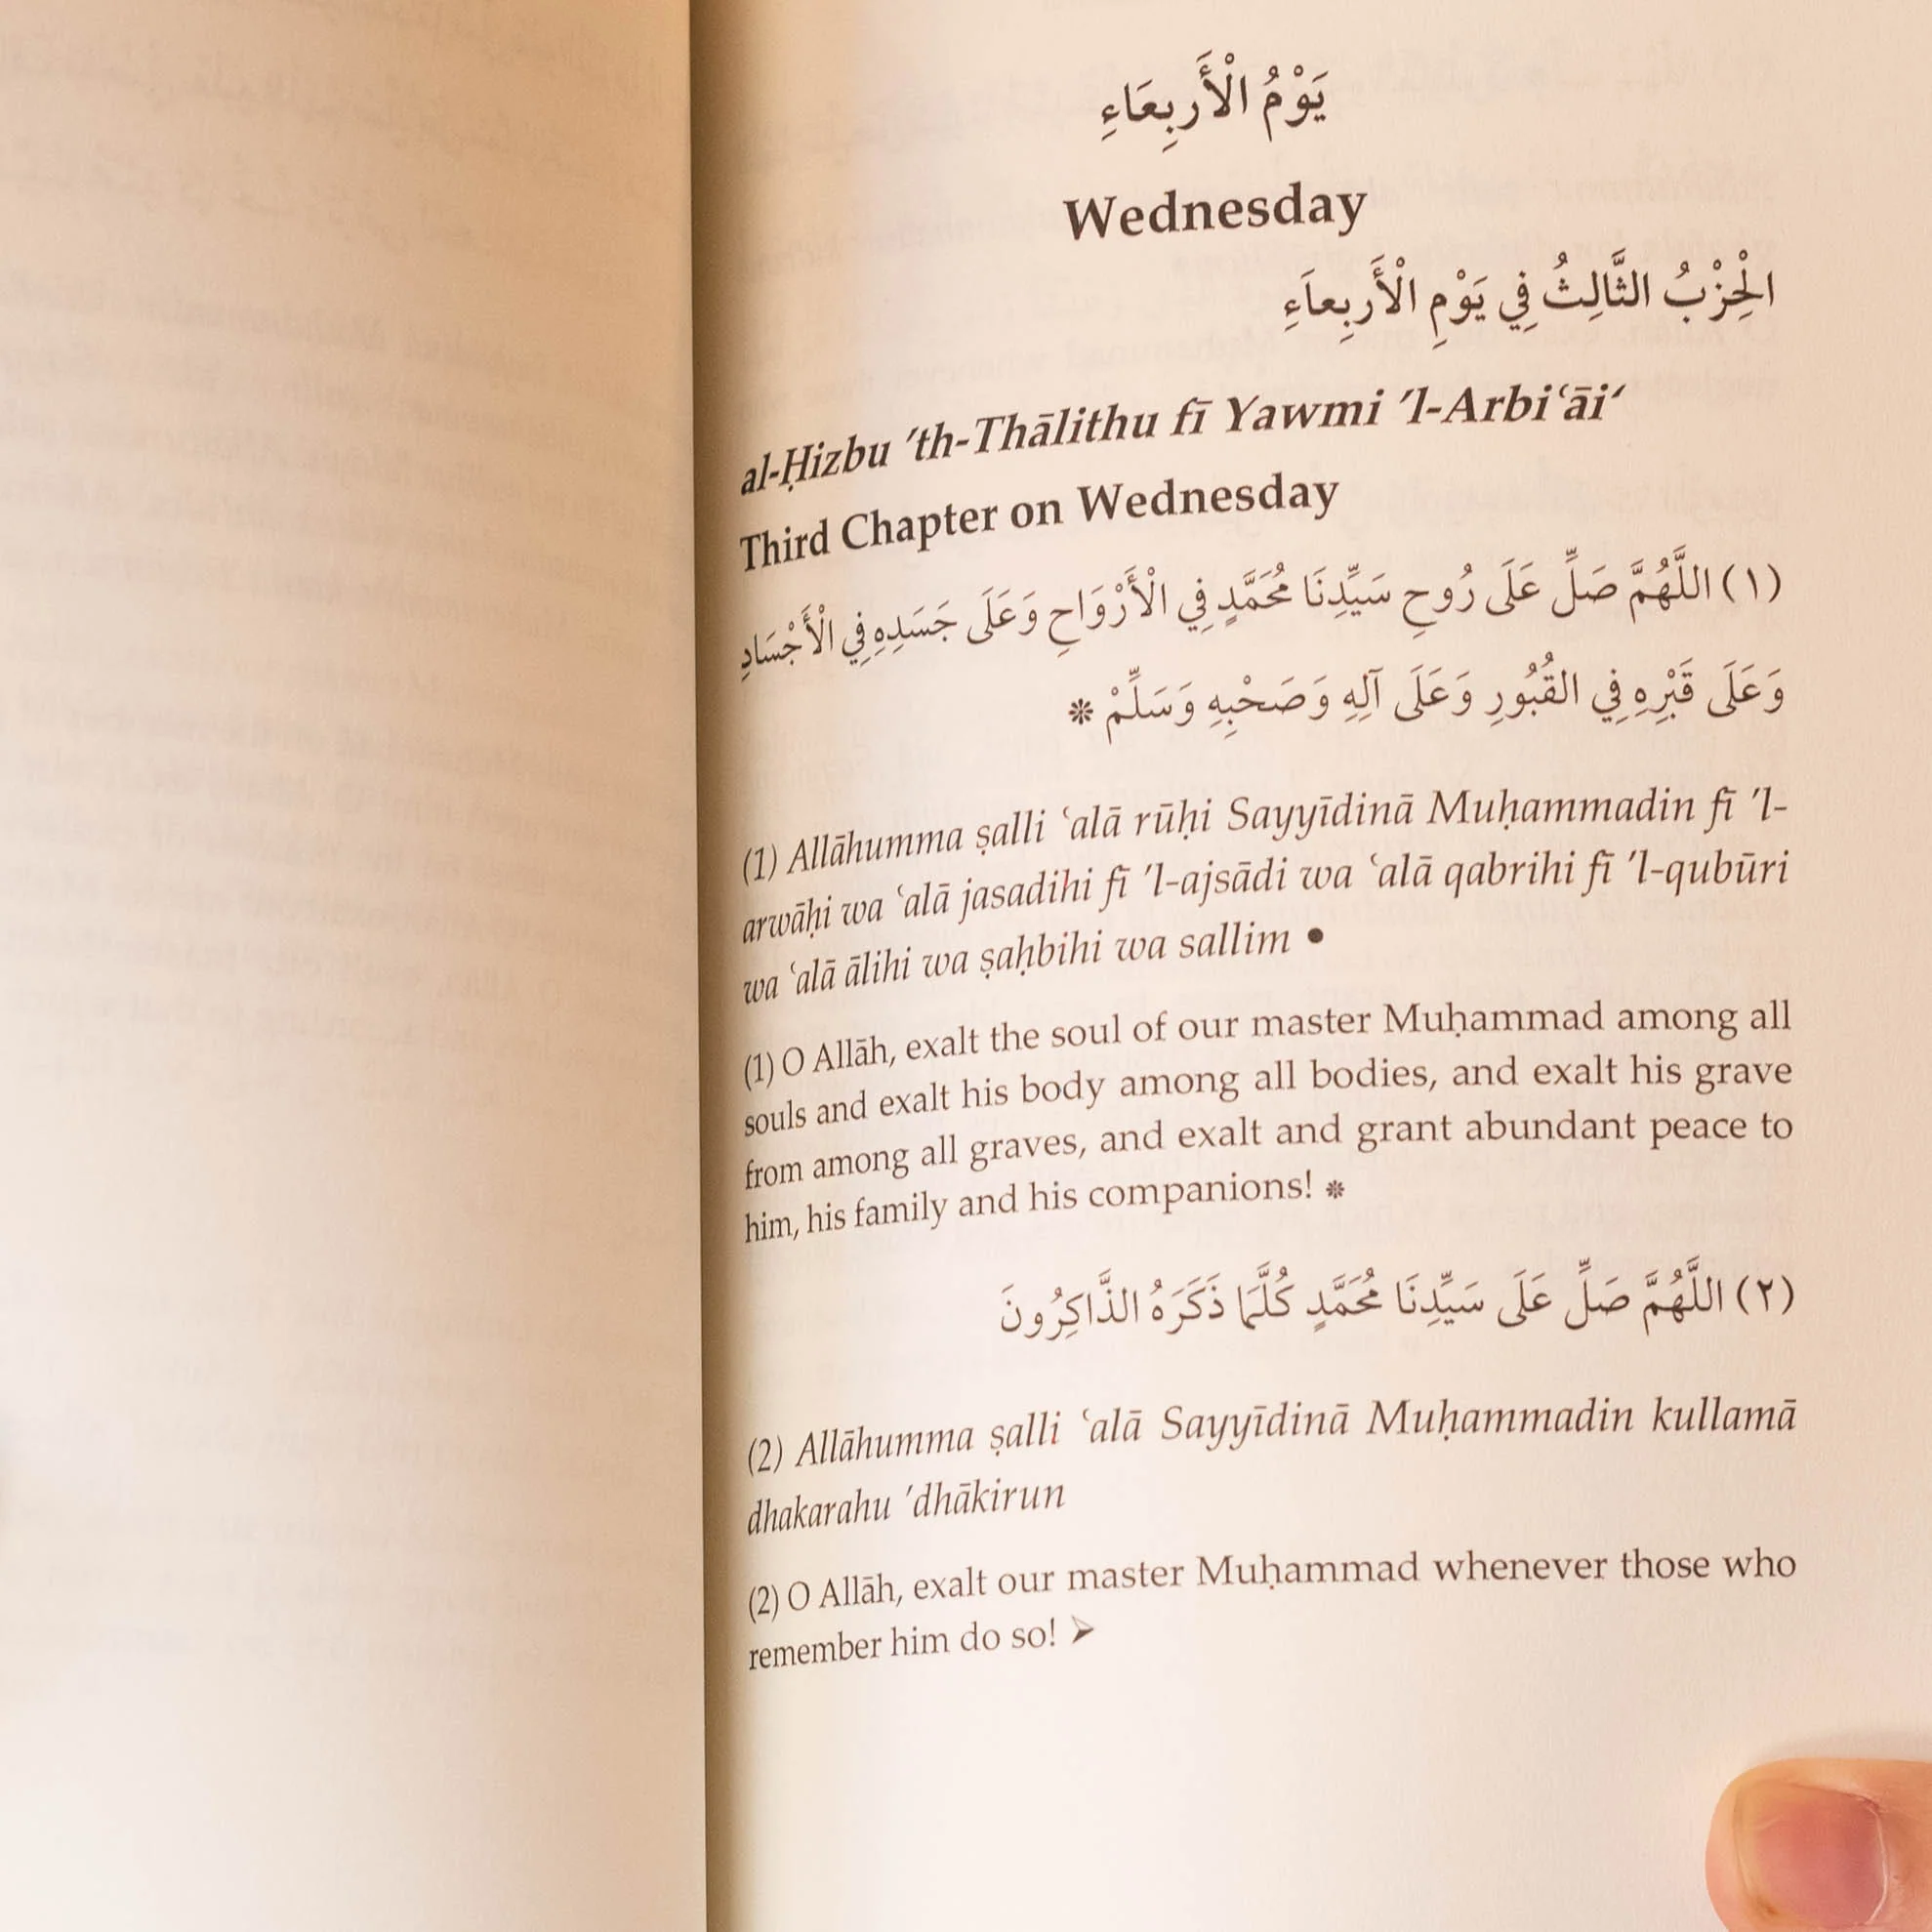 يَوْمُ الْأَربِعَاءِ
Wednesday
الْحِزْبُ الثَّالِثُ فِي يَوْمِ الْأَربِعاَءِ
al-Ḥizbu ’th-Thālithu fī Yawmi ’l-Arbi‘āi‘
Third Chapter on Wednesday
(١) اللَّهُمَّ صَلِّ عَلَى رُوحِ سَيِّدِنَا مُحَمَّدٍ فِي الْأَرْوَاحِ وَعَلَى جَسَدِهِ فِي الْأَجْسَادِ
وَعَلَى قَبْرِهِ فِي القُبُورِ وَعَلَى آلِهِ وَصَحْبِهِ وَسَلِّمْ ❊
(1) Allāhumma ṣalli ‘alā rūḥi Sayyīdinā Muḥammadin fī ’l-
arwāḥi wa ‘alā jasadihi fī ’l-ajsādi wa ‘alā qabrihi fī ’l-qubūri
wa ‘alā ālihi wa ṣaḥbihi wa sallim •
(1) O Allāh, exalt the soul of our master Muḥammad among all
souls and exalt his body among all bodies, and exalt his grave
from among all graves, and exalt and grant abundant peace to
him, his family and his companions! ❊
(٢) اللَّهُمَّ صَلِّ عَلَى سَيِّدِنَا مُحَمَّدٍ كُلَّمَا ذَكَرَهُ الذَّاكِرُونَ
(2) Allāhumma ṣalli ‘alā Sayyīdinā Muḥammadin kullamā
dhakarahu ’dhākirun
(2) O Allāh, exalt our master Muḥammad whenever those who
remember him do so! ➢